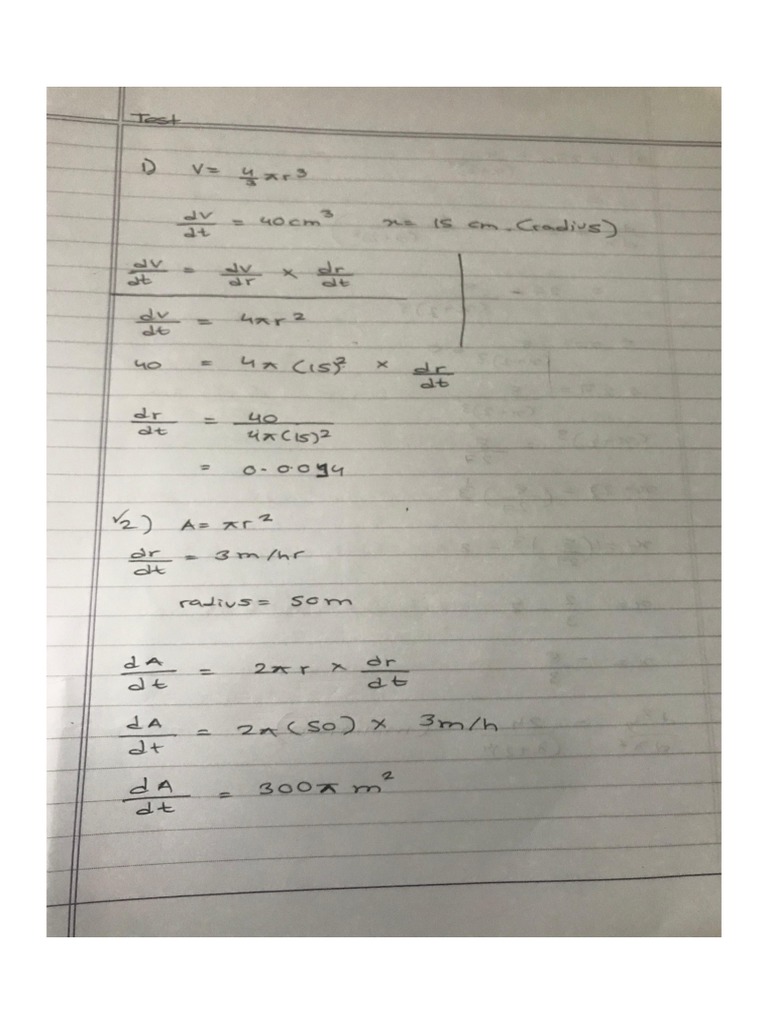 Test
1) V = 4/3 πr³
dv/dt = 40cm³ r = 15 cm. (radius)
dv/dt = dv/dr × dr/dt
dv/dt = 4πr²
40 = 4π(15)² × dr/dt
dr/dt = 40/4π(15)²
= 0.0.014
√2) A = πr²
dr/dt = 3m/hr
radius = 50m
dA/dt = 2πr × dr/dt
dA/dt = 2π(50) × 3m/h
dA/dt = 300π m²